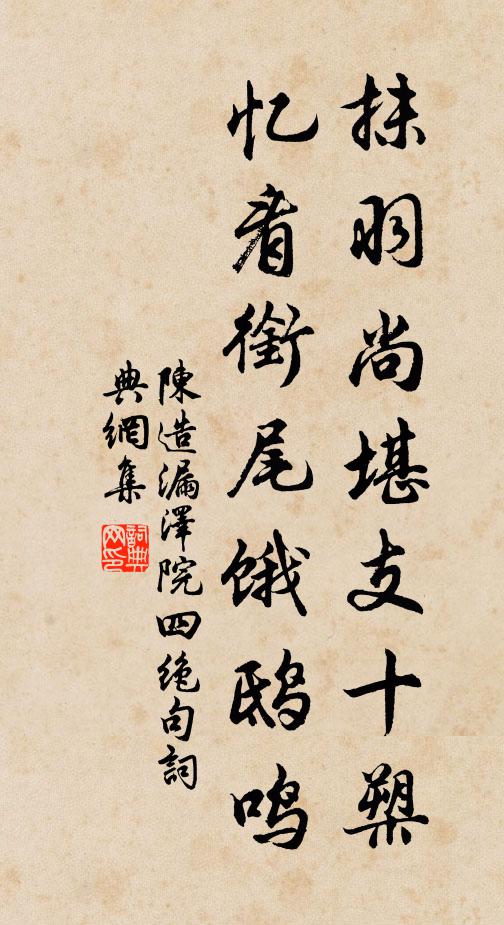 抹羽尚堪支十槊
忆看銜尾饿鸱鸣
陳造漏澤院四絶句詞
典網集
詞典网印